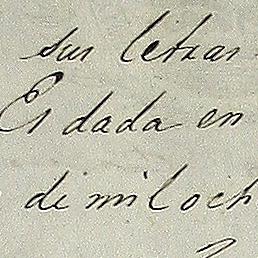 sus letras
Es dada en
de mil och